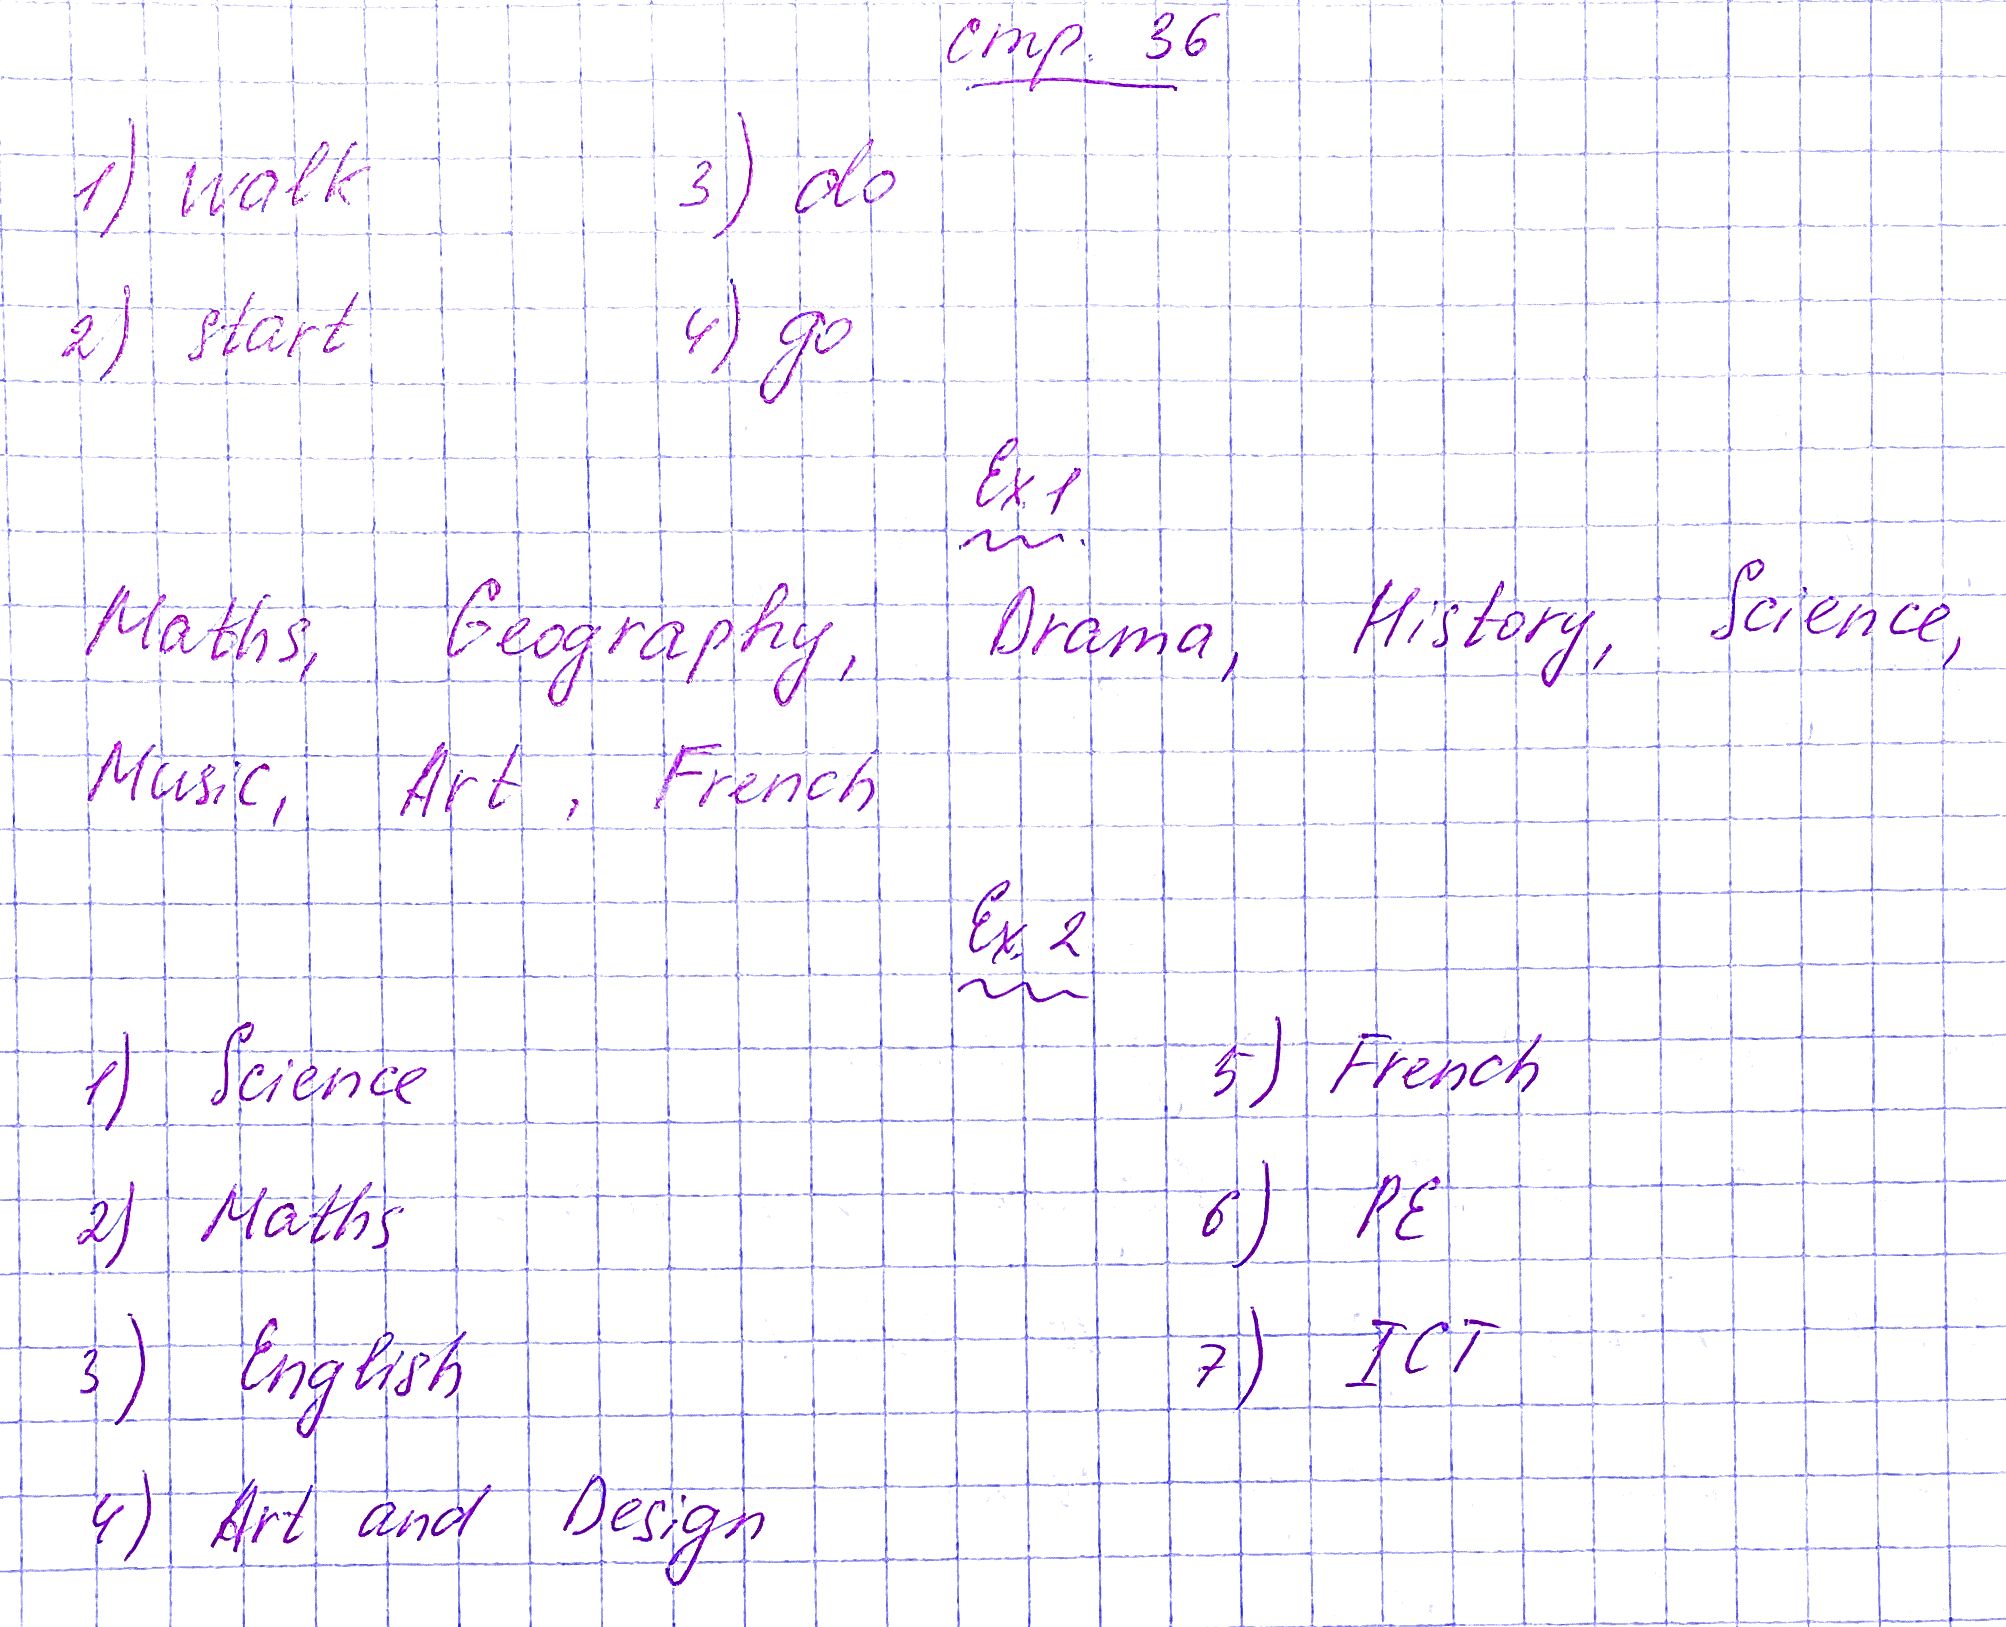 стр. 36
1) walk 3) do
2) start 4) go
Ex. 1
Maths, Geography, Drama, History, Science,
Music, Art, French
Ex. 2
1) Science 5) French
2) Maths 6) PE
3) English 7) ICT
4) Art and Design